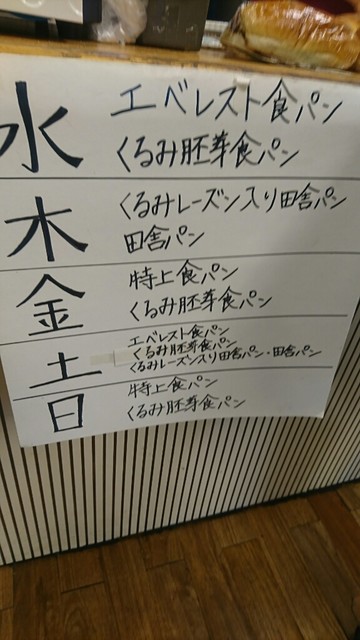 水
エベレスト食パン
くるみ胚芽食パン
木
くるみレーズン入り田舎パン
田舎パン
金
特上食パン
くるみ胚芽食パン
土
エベレスト食パン
くるみ胚芽食パン
くるみレーズン入り田舎パン・田舎パン
日
特上食パン
くるみ胚芽食パン